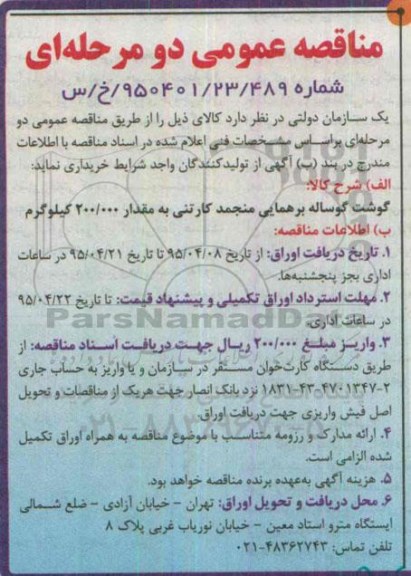 مناقصه عمومی دو مرحله‌ای
شماره ۹۵۰۴۰۱/۲۳/۴۸۹/خ/س
یک سازمان دولتی در نظر دارد کالای ذیل را از طریق مناقصه عمومی دو
مرحله‌ای براساس مشخصات فنی اعلام شده در اسناد مناقصه با اطلاعات
مندرج در بند (ب) آگهی از تولیدکنندگان واجد شرایط خریداری نماید:
الف) شرح کالا:
گوشت گوساله برهمایی منجمد کارتنی به مقدار ۲۰۰/۰۰۰ کیلوگرم
ب) اطلاعات مناقصه:
۱. تاریخ دریافت اوراق: از تاریخ ۹۵/۰۴/۰۸ تا تاریخ ۹۵/۰۴/۲۱ در ساعات
اداری بجز پنجشنبه‌ها.
۲. مهلت استرداد اوراق تکمیلی و پیشنهاد قیمت: تا تاریخ ۹۵/۰۴/۲۲
در ساعات اداری.
ParsNamadData
۳. واریز مبلغ ۲۰۰/۰۰۰ ریال جهت دریافت اسناد مناقصه: از
طریق دستگاه کارت‌خوان مستقر در سازمان و یا واریز به حساب جاری
۱۸۳۱-۴۳-۴۷۰۱۳۴۷-۲ نزد بانک انصار جهت هریک از مناقصات و تحویل
اصل فیش واریزی جهت دریافت اوراق.
۰۲۱-۸۸۳۴۹۶۷۰-۵
۴. ارائه مدارک و رزومه متناسب با موضوع مناقصه به همراه اوراق تکمیل
شده الزامی است.
۵. هزینه آگهی به‌عهده برنده مناقصه خواهد بود.
۶. محل دریافت و تحویل اوراق: تهران - خیابان آزادی - ضلع شمالی
ایستگاه مترو استاد معین - خیابان نوریاب غربی پلاک ۸
تلفن تماس: ۴۸۳۶۲۷۴۳-۰۲۱